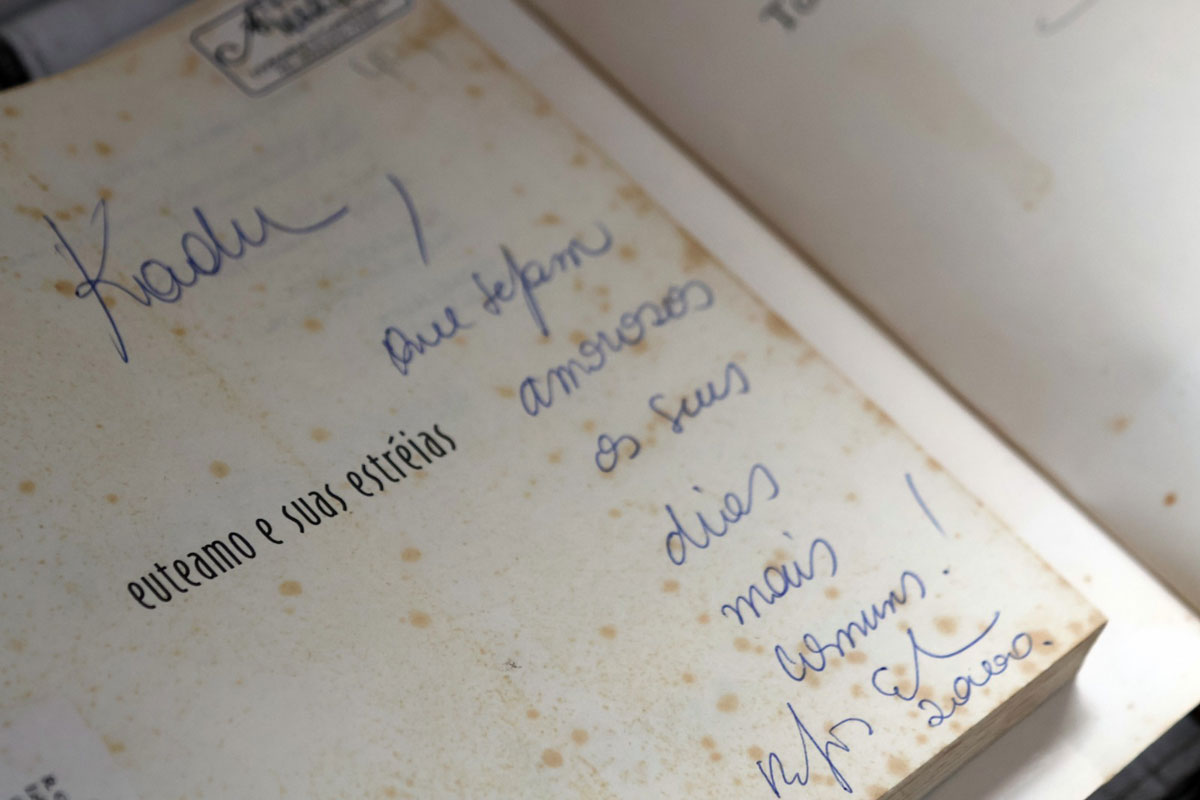 Kadu,
que sejam
amorosos
os seus
dias
mais
comuns!
euteamo e suas estréias
2000.